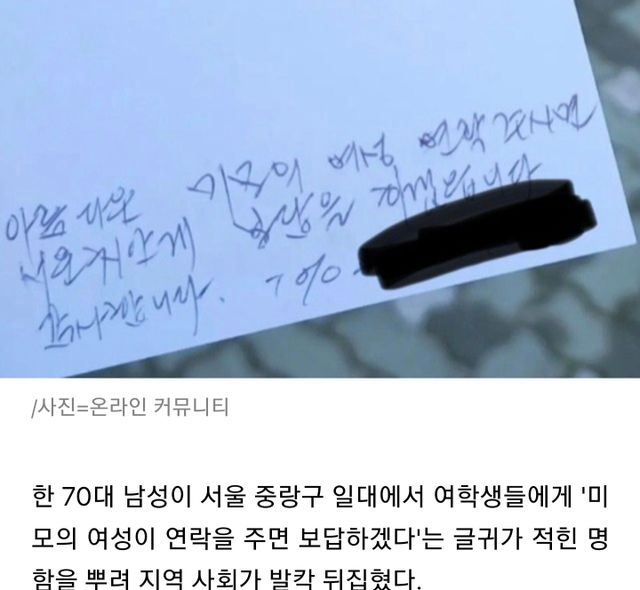 아름다운 미모의 여성 연락주시면
보답을 해드립니다
감사합니다. 70
/사진=온라인 커뮤니티
한 70대 남성이 서울 중랑구 일대에서 여학생들에게 '미
모의 여성이 연락을 주면 보답하겠다'는 글귀가 적힌 명
함을 뿌려 지역 사회가 발칵 뒤집혔다.